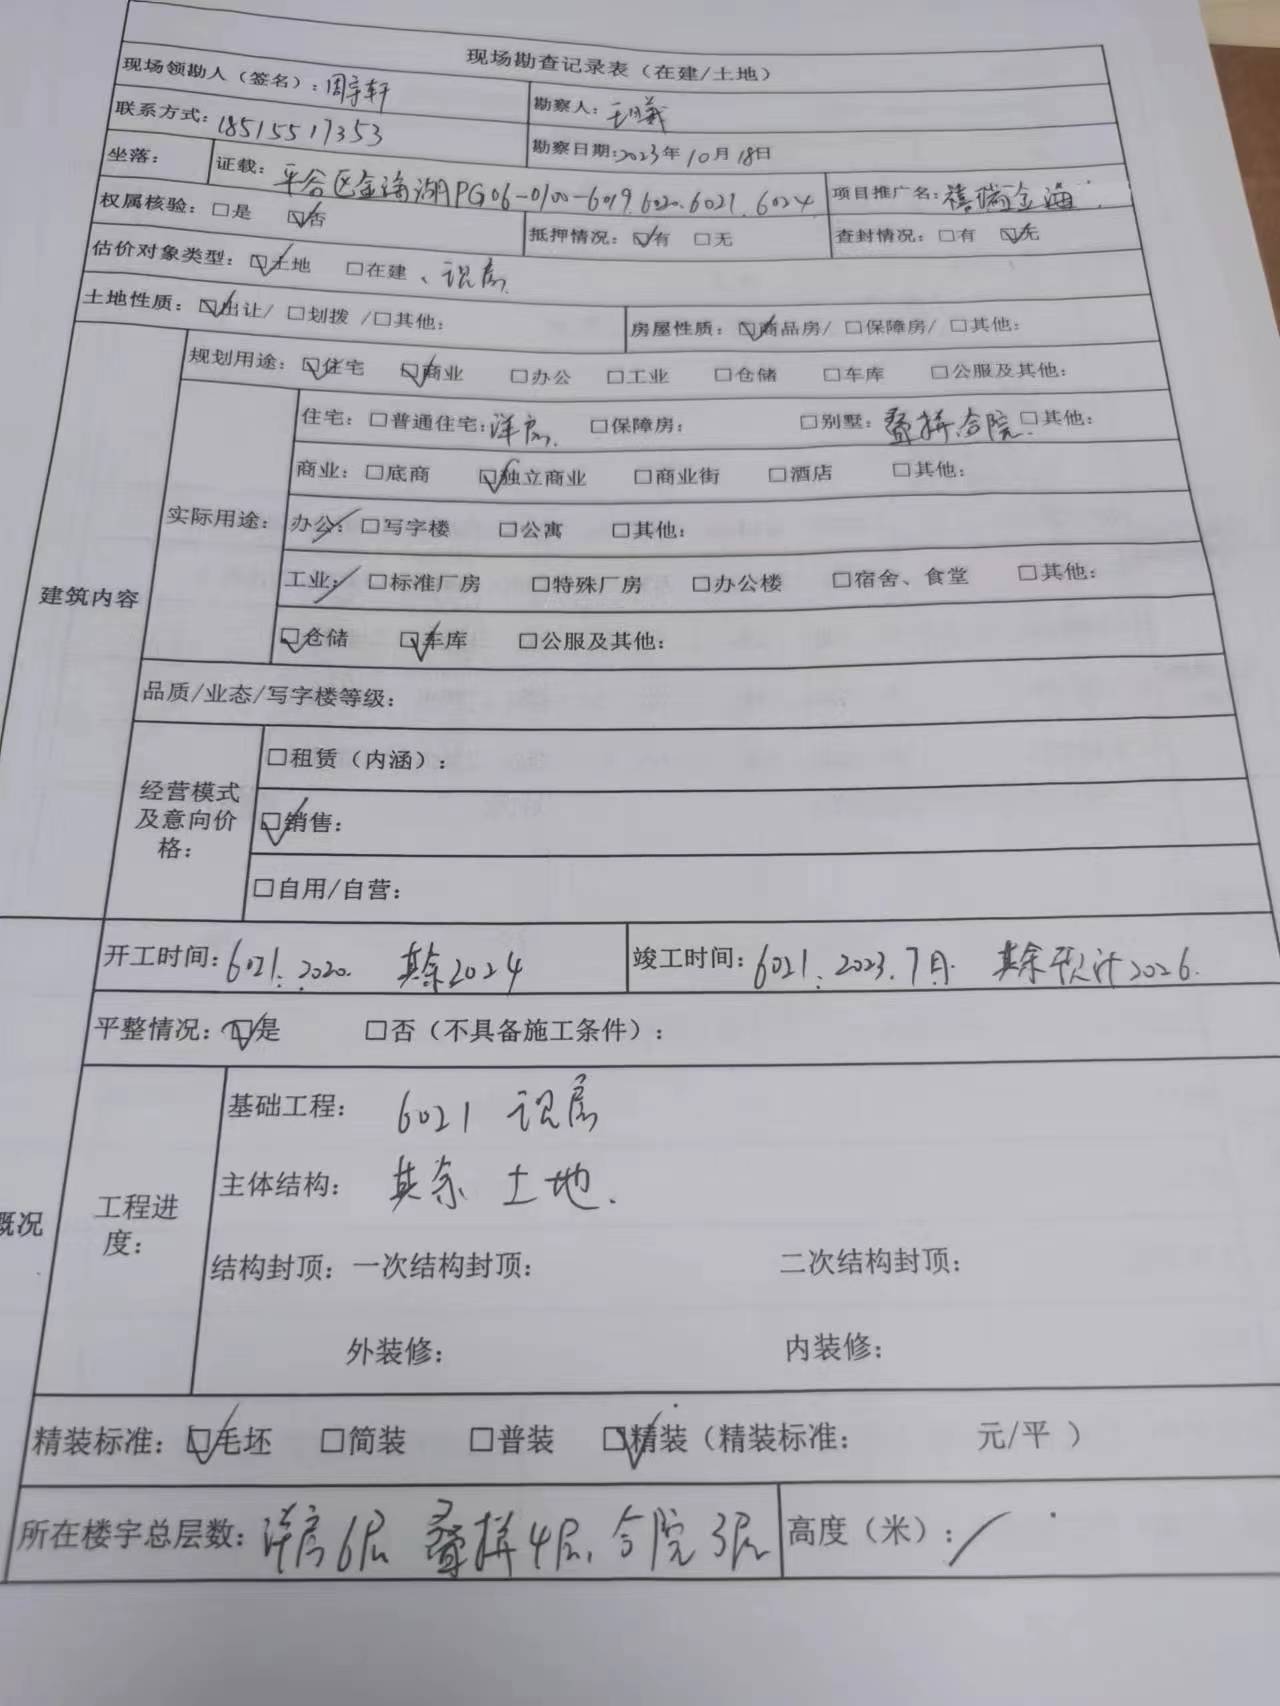 现场勘查记录表（在建/土地）
现场领勘人（签名）：周宇轩 勘察人：
联系方式：18515517353 勘察日期：2023年10月18日
坐落： 证载：平谷区金海湖PG06-0100-6019.6020.6021.6024 项目推广名：禧瑞金海
权属核验：□是 ☑否 抵押情况：☑有 □无 查封情况：□有 ☑无
估价对象类型：☑土地 □在建、现房
土地性质：☑出让/ □划拨 /□其他： 房屋性质：☑商品房/ □保障房/ □其他：
建筑内容
规划用途：☑住宅 ☑商业 □办公 □工业 □仓储 □车库 □公服及其他：
实际用途：
住宅：□普通住宅：洋房. □保障房： □别墅：叠拼.合院. □其他：
商业：□底商 ☑独立商业 □商业街 □酒店 □其他：
办公：□写字楼 □公寓 □其他：
工业：□标准厂房 □特殊厂房 □办公楼 □宿舍、食堂 □其他：
☑仓储 ☑车库 □公服及其他：
品质/业态/写字楼等级：
经营模式
及意向价
格：
□租赁（内涵）：
☑销售：
□自用/自营：
开工时间：6021：2020. 其余2024 竣工时间：6021：2023.7月. 其余预计2026.
平整情况：☑是 □否（不具备施工条件）：
概况
工程进
度：
基础工程： 6021 现房
主体结构： 其余 土地.
结构封顶：一次结构封顶： 二次结构封顶：
外装修： 内装修：
精装标准：☑毛坯 □简装 □普装 ☑精装（精装标准： 元/平 ）
所在楼宇总层数：洋房6层 叠拼4层.合院3层 高度（米）：/